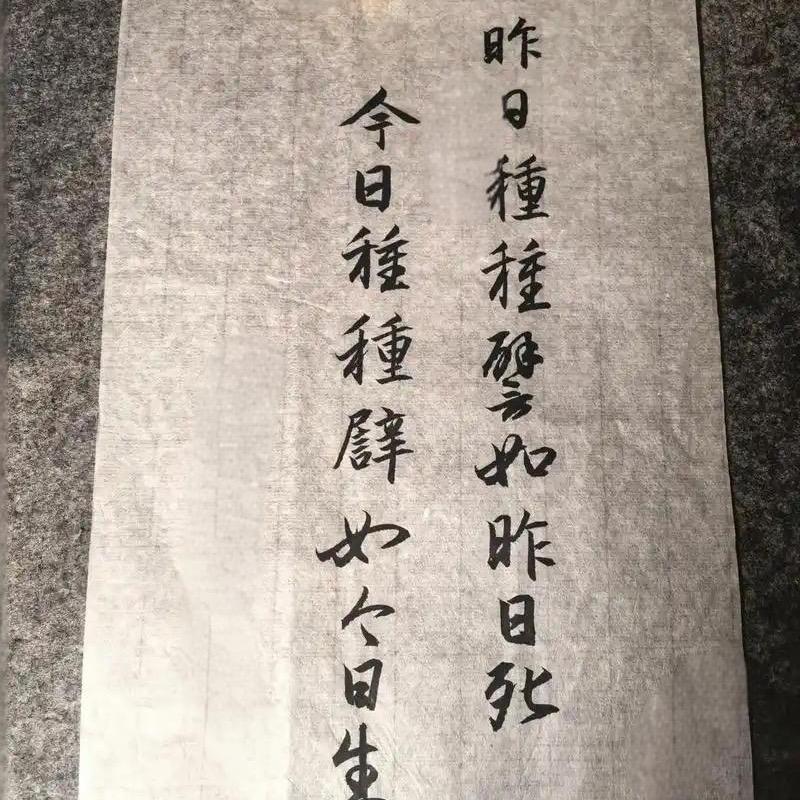 昨日種種譬如昨日死
今日種種譬如今日生